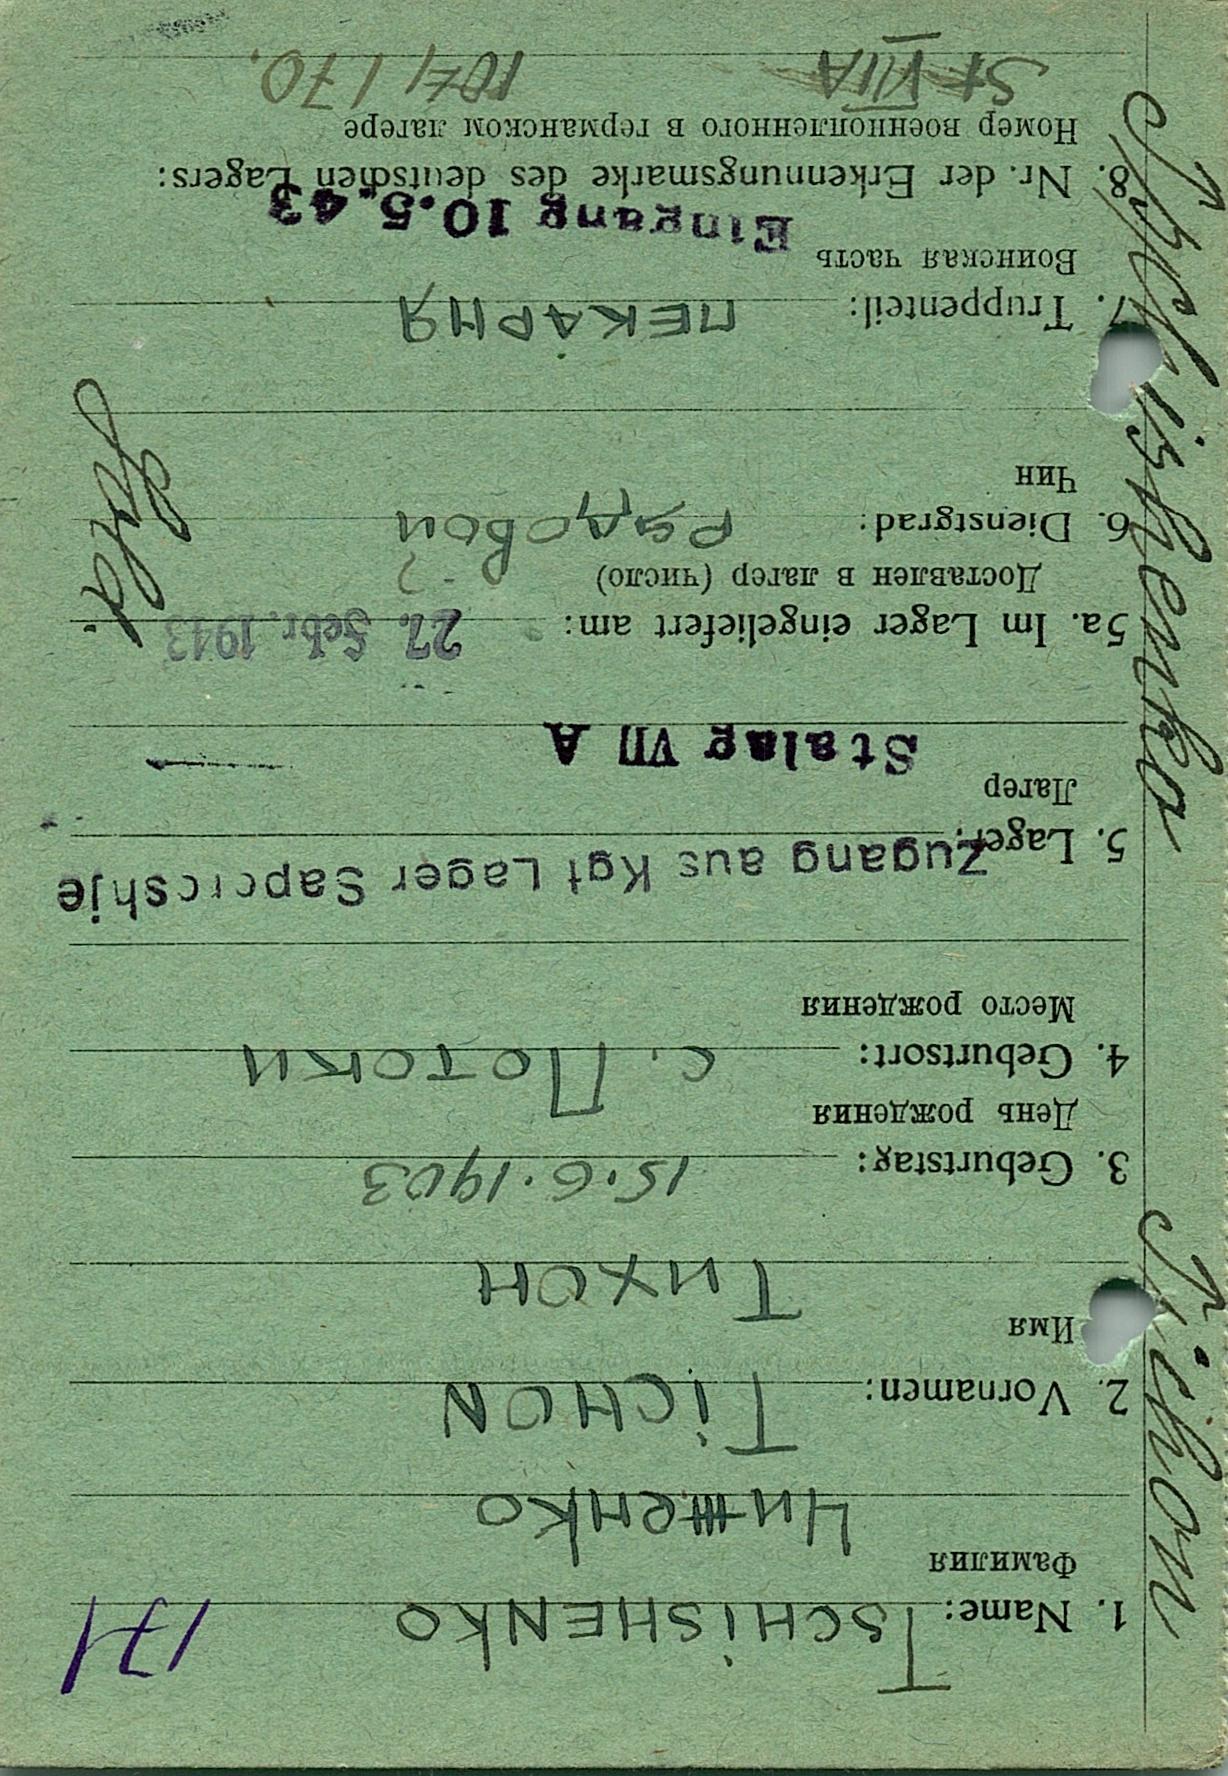 Tschishenko Tichon
171
1. Name: TSCHISHENKO
Фамилия
Чиженко
2. Vornamen: TiCHON
Имя
Тихон
3. Geburtstag: 15.6.1903
День рождения
4. Geburtsort: с. Потоки
Место рождения
Zugang aus Kgf Lager Saporoshje
5. Lager:
Лагер
Stalag VII A
5a. Im Lager eingeliefert am: 27. Febr. 1943
Доставлен в лагер (число) ?
6. Dienstgrad: Рядовой
Чин
Sold.
7. Truppenteil: ПЕКАРНЯ
Воинская часть
Eingang 10.5.43
8. Nr. der Erkennungsmarke des deutschen Lagers:
Номер военнопленного в германском лагере
St VII A